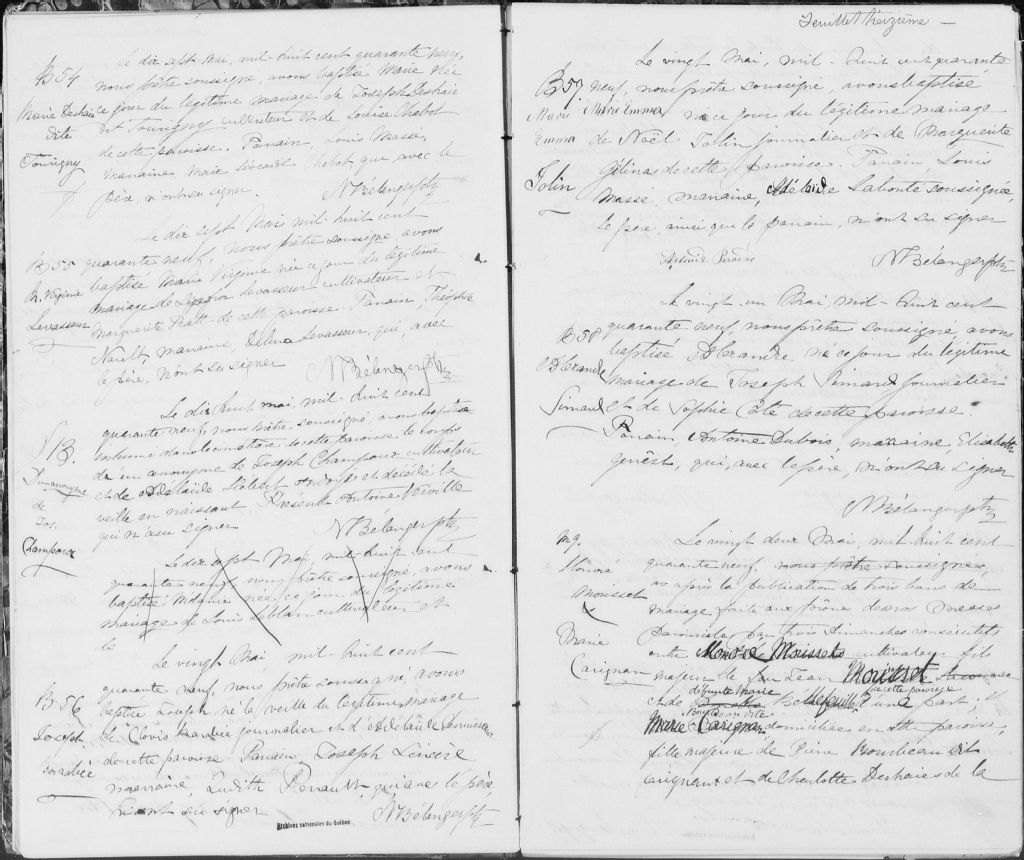 B 54
Marie Deshaie
dite
Tourigny
Le dix sept Mai, mil-huit cent quarante neuf,
nous prêtre soussigné, avons baptisé Marie née
ce jour du légitime mariage de Joseph Deshaie
dit Tourigny cultivateur et de Louise Chabot
de cette paroisse. Parrain, Louis Massé,
Marraine Marie Chabot qui, avec le
père, n'ont su signer.
N Bélanger ptr
B 55
M. Virginie
Levasseur
Le dix sept Mai mil-huit cent
quarante neuf, nous prêtre soussigné avons
baptisé Marie Virginie née ce jour du légitime
mariage de Levasseur cultivateur et
Marguerite Pratt de cette paroisse. Parrain, Théophile
Nault, marraine, Delina Levasseur, qui, avec
le père, n'ont su signer
N Bélanger ptr
S 13.
D'un anonyme
de
Jos.
Champoux
Le dix huit mai, mil-huit cent
quarante neuf, nous prêtre soussigné, avons
inhumé dans le cimetière de cette paroisse le corps
d'un anonyme de Joseph Champoux cultivateur
et de Adelaïde et décédé la
veille en naissant. Présent Antoine
qui n'a su signer
N Bélanger ptr
Le dix sept Mai, mil-huit cent
quarante neuf, nous prêtre soussigné, avons
baptisé née ce jour du légitime
mariage de Louis Leblanc cultivateur et
de
B 56
Joseph
Barabée
Le vingt Mai mil-huit cent
quarante neuf, nous prêtre soussigné, avons
baptisé Joseph né la veille du légitime mariage
de Clovis Barabée journalier et d'Adelaide
de cette paroisse Parrain, Joseph
marraine, Judith Renault, qui avec le père
n'ont su signer
N Bélanger ptr
Archives nationales du Québec
Feuillet treizième
B 57.
Marie
Emma
Jolin
Le vingt Mai, mil-huit cent quarante
neuf, nous prêtre soussigné, avons baptisé
Marie Emma née ce jour du légitime mariage
de Noël Jolin journalier et de Marguerite
Gélinas de cette paroisse. Parrain Louis
Massé, marraine, Adélaïde Labonté soussignée,
le père, ainsi que le parrain, n'ont su signer
N Bélanger ptr
B 58
Alexandre
Simard
Le vingt un Mai, mil-huit cent
quarante neuf, nous prêtre soussigné, avons
baptisé Alexandre né ce jour du légitime
mariage de Joseph Simard journalier
et de Sophie Côté de cette paroisse.
Parrain, Antoine Dubois, marraine, Elisabeth
Genest, qui, avec le père, n'ont su signer
N Bélanger ptr
M 9.
Honoré
Mousset
Marie
Carignan
Le vingt deux Mai, mil-huit cent
quarante neuf, nous prêtre soussigné,
après la publication de trois bans de
mariage faite aux prônes de nos messes
paroissiales par trois Dimanches consécutifs
entre Honoré Moussets cultivateur fils
majeur de feu Jean Mousset
et de defunte Marie Bellefeuille de cette paroisse d'une part;
Marie Rombeau dite Carignan domiciliée en dite paroisse,
fille majeure de Pierre Rombeau dit
Carignan et de Charlotte Deshaies de la